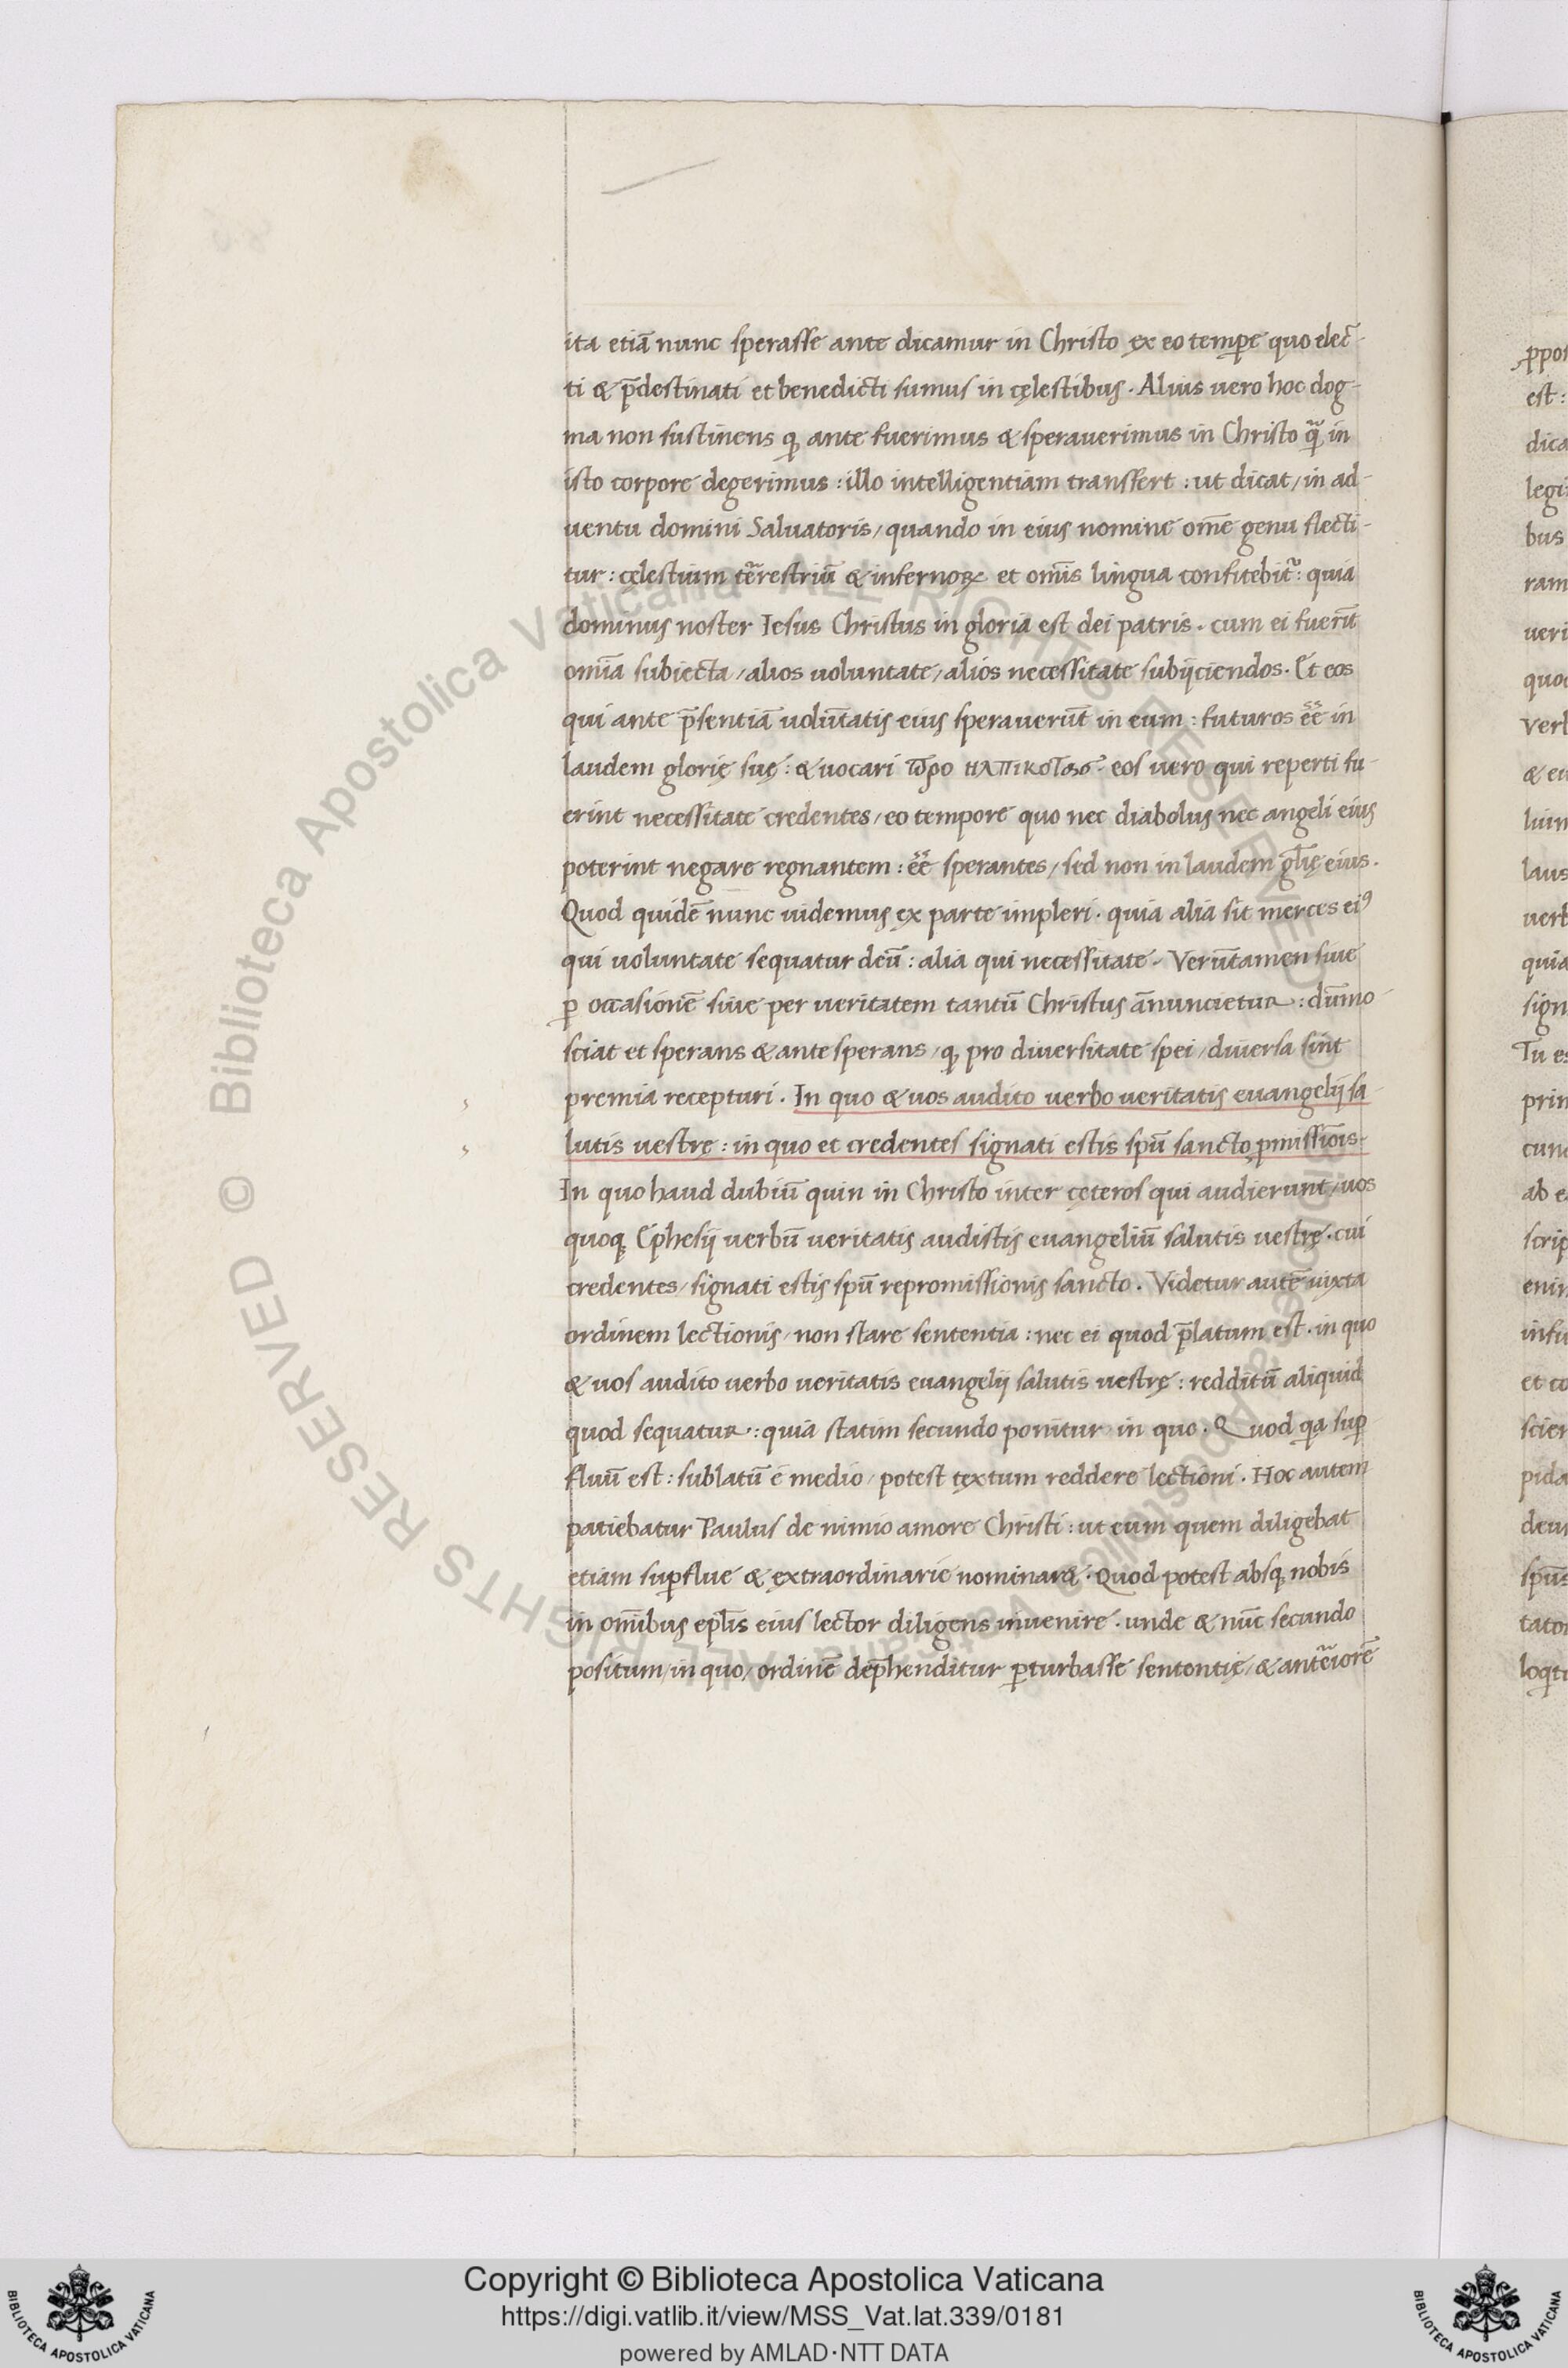 ita etiā nunc sperasse ante dicamur in Christo ex eo temp̲e quo elec̄-
ti & p̄destinati et benedicti sumus in cęlestibus. Alius uero hoc dog-
ma non sustinens ꝙ ante fuerimus & sperauerimus in Christo q̄ꝫ in
isto corpore degerimus: illo intelligentiam transfert: ut dicat/ in ad-
uentu domini Saluatoris/ quando in eius nomine om̄e genu flecti-
tur: cęlestium tr̄restriū & infernoꝝ et om̄is lingua confitebit᷑: quia
dominus noster Iesus Christus in gloria est dei patris. cum ei fuerūt
om̄ia subiecta/ alios uoluntate/ alios necessitate subijciendos. Et eos
qui ante p̄sentiā uolūtatis eius sperauerūt in eum: futuros ēē in
laudem glorię suę: & uocari προ ηλπικοτασ. eos uero qui reperti fu-
erint necessitate credentes/ eo tempore quo nec diabolus nec angeli eius
poterint negare regnantem: ēē sperantes/ sed non in laudem gl̄ię eius.
Quod quidē nunc uidemus ex parte impleri. quia alia sit merces eiꝰ
qui uoluntate sequatur deū: alia qui necessitate. Verūtamen siue
ꝑ occasionē siue per ueritatem tantū Christus ānuncietur: dūmo
sciat et sperans & ante sperans/ ꝙ pro diuersitate spei/ diuersa sint
premia recepturi. In quo & uos audito uerbo ueritatis euangelij sa-
lutis uestrę: in quo et credentes signati estis spū sancto ꝓmissiōis.
In quo haud dubiū quin in Christo inter cęteros qui audierunt/ uos
quoqꝫ Ephesij uerbū ueritatis audistis euangeliū salutis uestrę. cui
credentes/ signati estis spū repromissionis sancto. Videtur autē iuxta
ordinem lectionis/ non stare sententia: nec ei quod p̄latum est. in quo
& uos audito uerbo ueritatis euangelij salutis uestrę: redditū aliquid
quod sequatur: quia statim secundo ponitur in quo. Quod qa suꝑ
fluū est: sublatū e medio/ potest textum reddere lectioni. Hoc autem
patiebatur Paulus de nimio amore Christi: ut eum quem diligebat
etiam suꝑflue & extraordinarie nominaret. Quod potest absqꝫ nobis
in om̄ibus epl̄is eius lector diligens inuenire. unde & nūc secundo
positum/ in quo/ ordinē dep̄henditur ꝑturbasse sententię/ & anteriorē
ꝓpo
est:
dica
legi
bus
ram
ueri
quo
Verb
& eu
lum
laus
uerb
quia
sign
Tu es
prin
cun
ab e
scrip
enim
infu
et co
scien
pida
deu
spūs
tato
loqt
© Biblioteca Apostolica Vaticana ALL RIGHTS RESERVED © Biblioteca Apostolica Vaticana ALL RIGHTS RESERVED
Copyright © Biblioteca Apostolica Vaticana
https://digi.vatlib.it/view/MSS_Vat.lat.339/0181
powered by AMLAD·NTT DATA
BIBLIOTECA APOSTOLICA VATICANA
BIBLIOTECA APOSTOLICA VATICANA